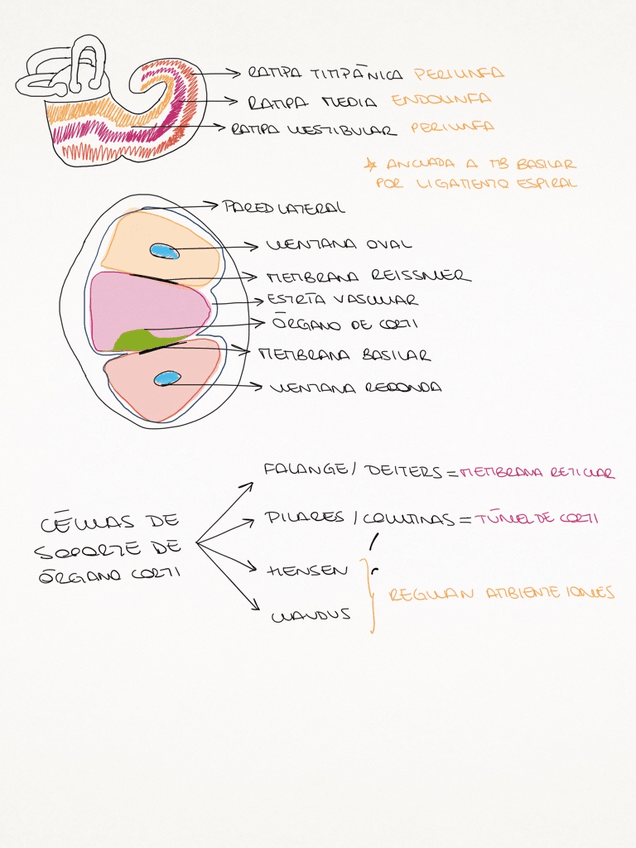 RAMPA TIMPÁNICA PERILINFA
RAMPA MEDIA ENDOLINFA
RAMPA VESTIBULAR PERILINFA
* ANCLADA A MB BASILAR
POR LIGAMENTO ESPIRAL
PARED LATERAL
VENTANA OVAL
MEMBRANA REISSNER
ESTRÍA VASCULAR
ÓRGANO DE CORTI
MEMBRANA BASILAR
VENTANA REDONDA
FALANGE/DEITERS = MEMBRANA RETICULAR
CÉLULAS DE
SOPORTE DE
ÓRGANO CORTI
PILARES/COLUMNAS = TÚNEL DE CORTI
HENSEN
CLAUDIUS
REGULAN AMBIENTE IONES